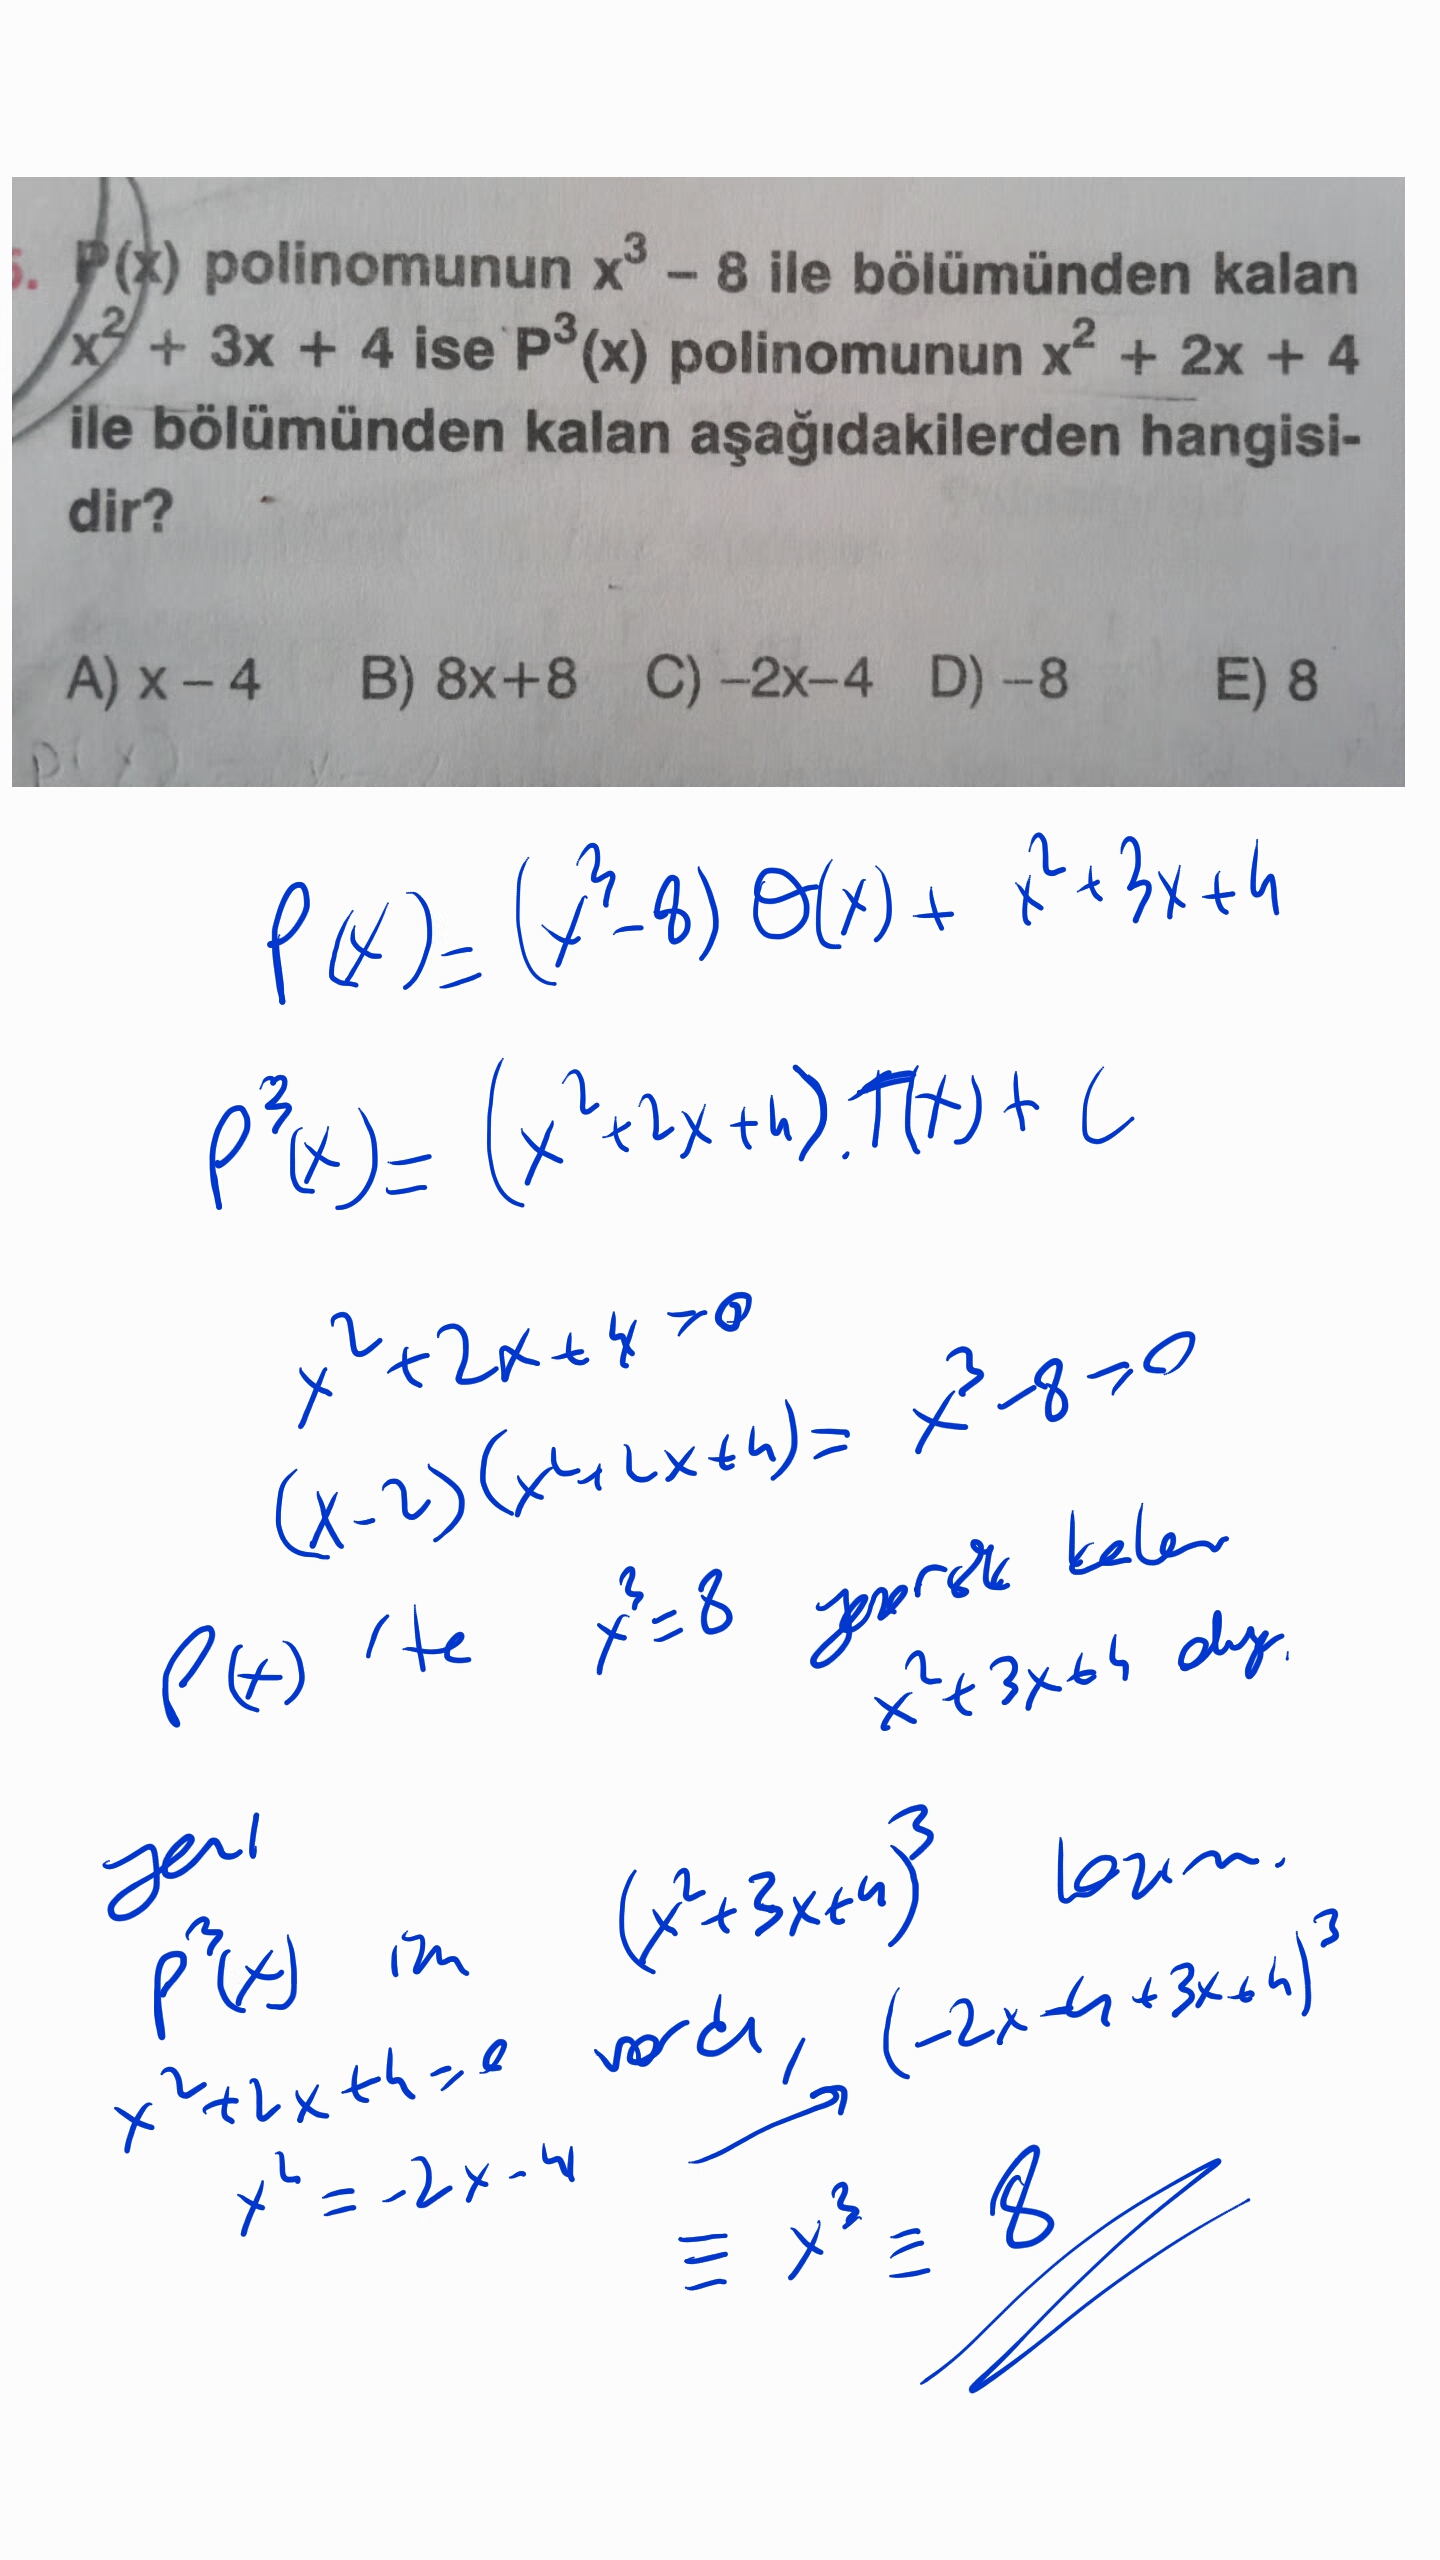 5. P(x) polinomunun x³ – 8 ile bölümünden kalan
x² + 3x + 4 ise P³(x) polinomunun x² + 2x + 4
ile bölümünden kalan aşağıdakilerden hangisi-
dir?
A) x – 4 B) 8x+8 C) –2x–4 D) –8 E) 8
P(x)
P(x) = (x³-8) Q(x) + x²+3x+4
P³(x) = (x²+2x+4).T(x) + (
x²+2x+4 = 0
(x-2)(x²+2x+4) = x³-8=0
P(x) 'te x³=8 yazarsak kalan
x²+3x+4 oluy.
yeni
P³(x) in (x²+3x+4)³ lazım.
x²+2x+4=0 vardı, (-2x-4+3x+4)³
x² = -2x-4
≡ x³ ≡ 8